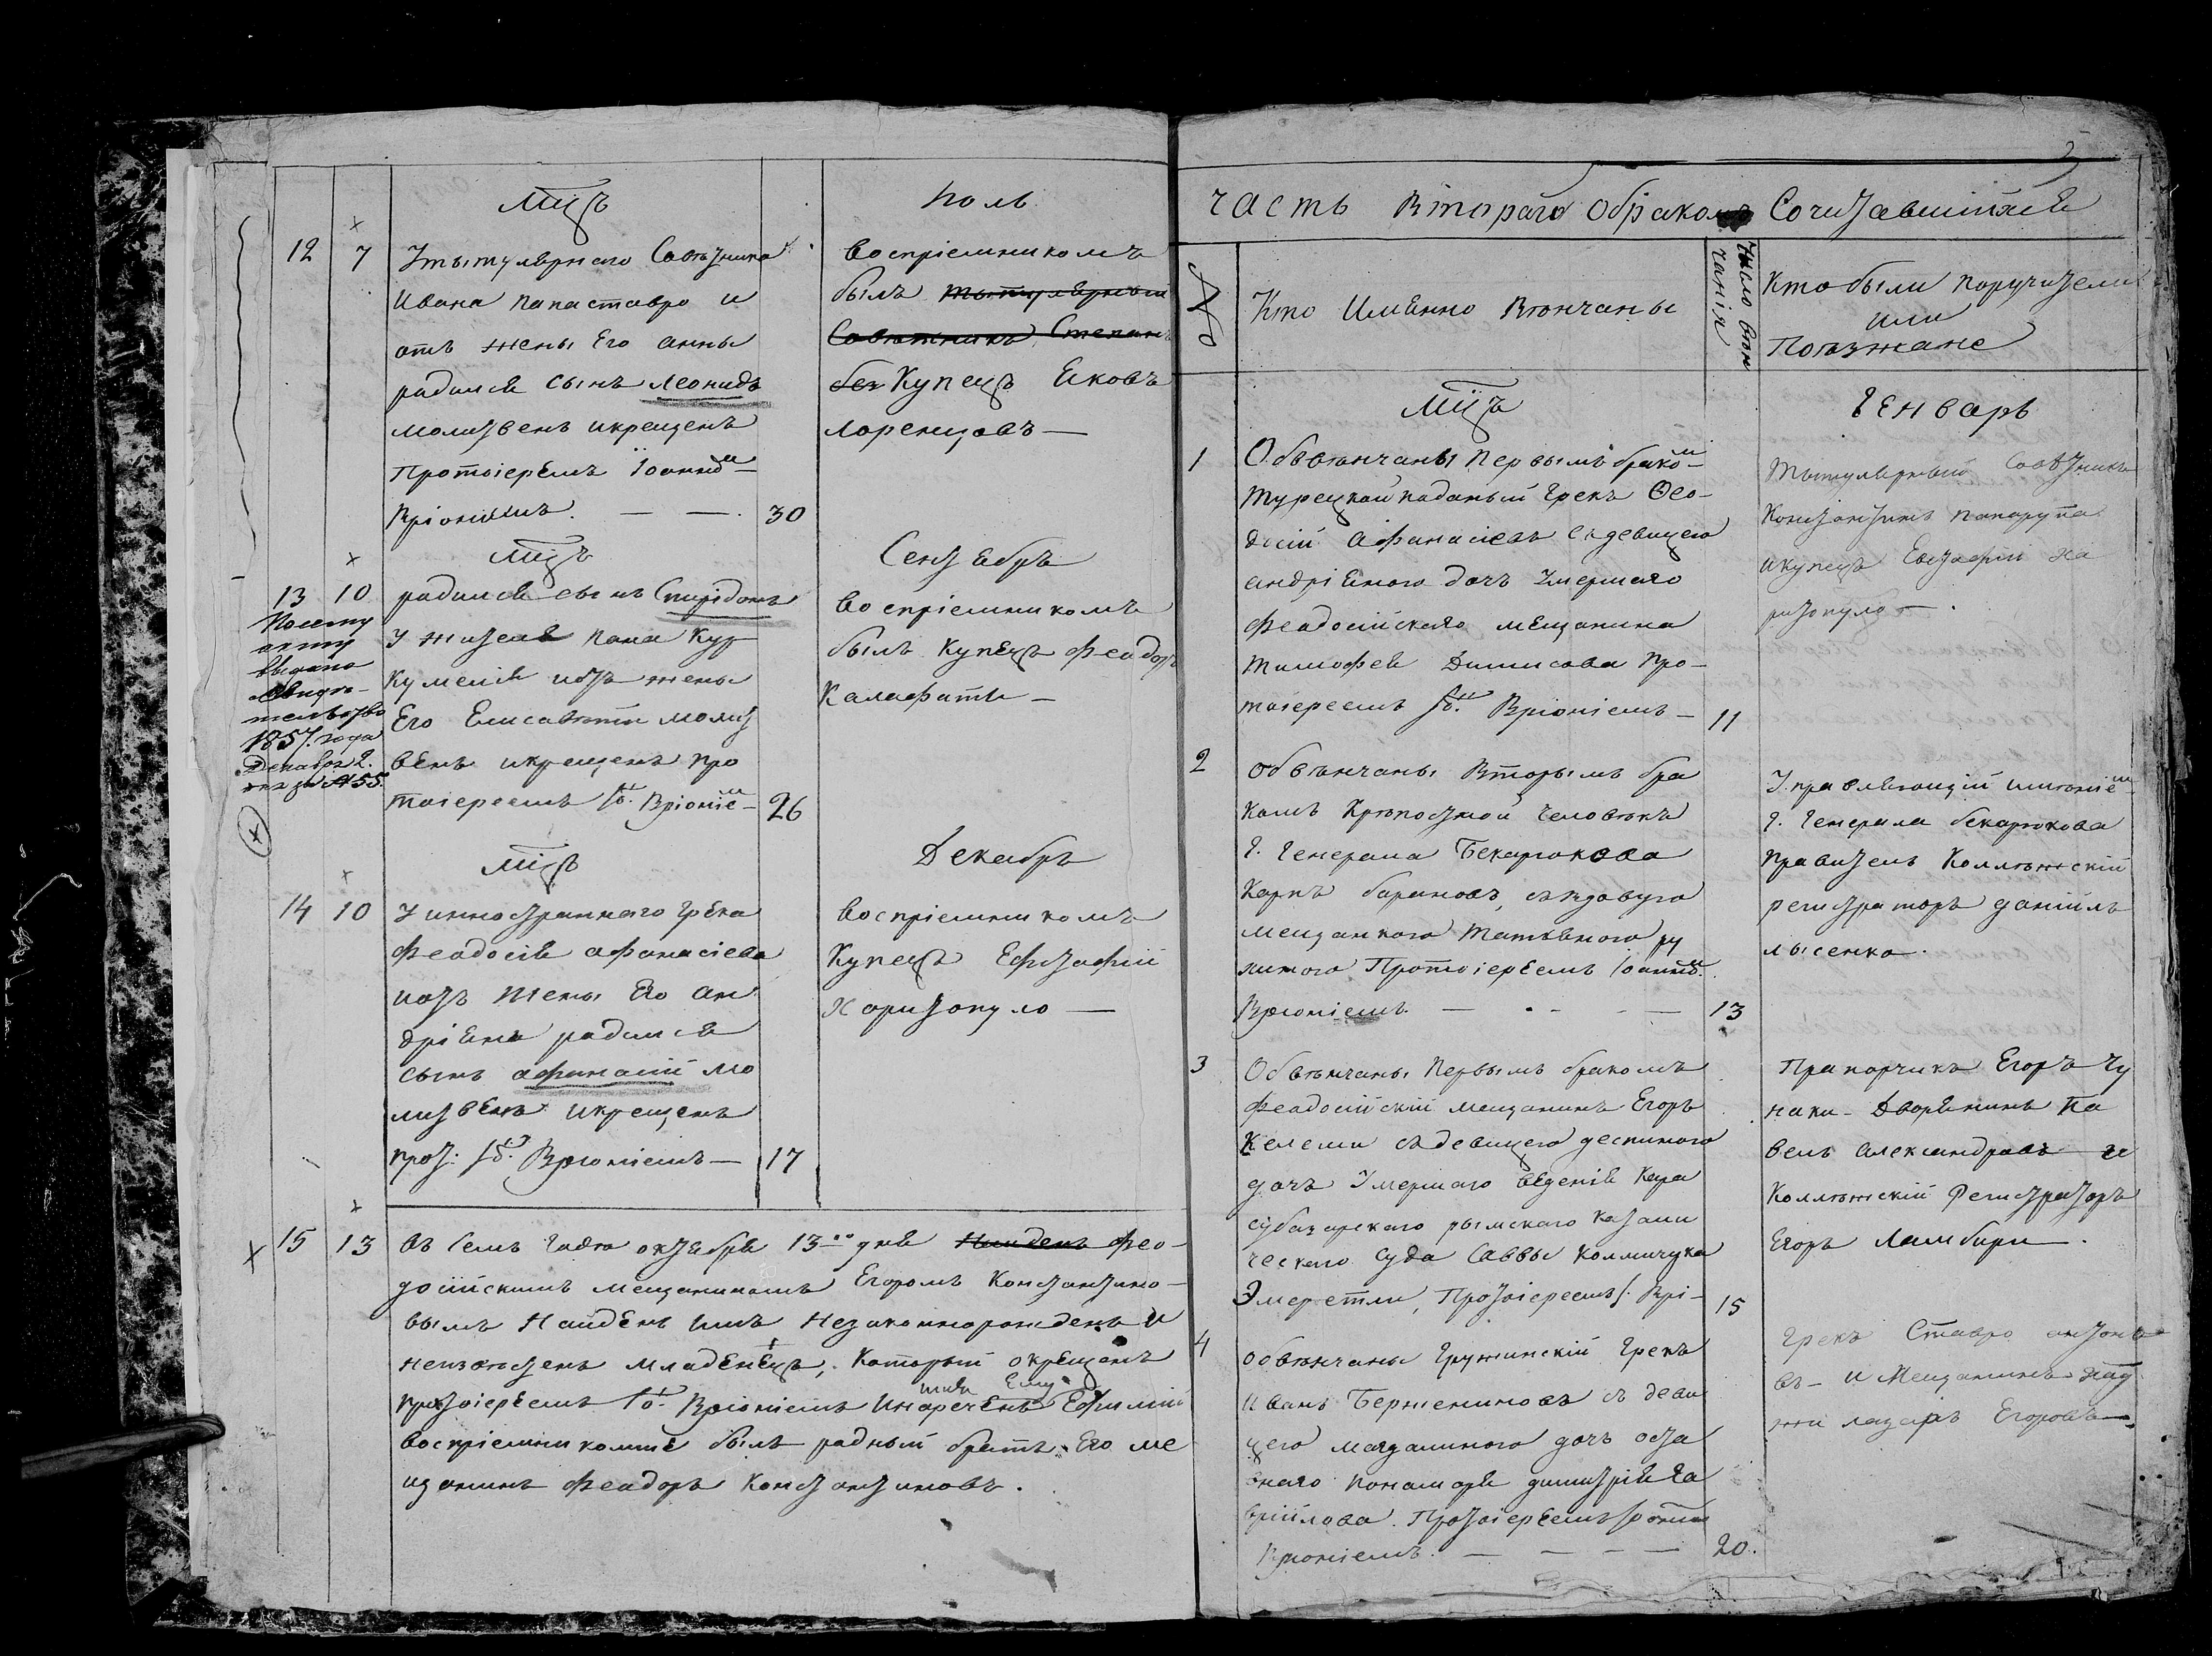 Мцъ
Іюль
12
7
Утытулярнаго Совѣтника
Ивана Папаставро и
отъ жены Его анны
радился сынъ Леонидъ
молитвенъ икрещенъ
Протоіереемъ Іоанно^м
Вріонiемъ. — — . 30
воспріемникомъ
былъ тытулярный
Совѣтникъ Степанъ
без Купецъ Яковъ
лоренцовъ —
Мцъ
Сентябръ
13
10
радился сынъ Спиридонъ
у жителя Пана
Кумелія иотъ жены
Его Елисаветы молит
венъ икрещенъ про
тоіереемъ Іо. Вріоніе^м — 26
Посему
акту
выдано
свидѣ-
тельство
1857. года
Декабря 2.
дня за № 55.
воспріемникомъ
былъ Купецъ Феадоръ
Калафати —
Мцъ
Декабръ
14
10
У инностраннаго Грека
Феадосія афанасіева
иотъ жены Его ан
дріяна радился
сынъ афанасій мо
литвенъ икрещенъ
прот: Іо. Вріоніемъ — 17
воспріемникомъ
Купецъ Ефстафій
Харитопуло —
15
13
Въ семъ Годѣ октября 13-го дня Найденъ Фео-
досійскимъ мещаниномъ Егоромъ Константино-
вымъ Найденъ имъ Незаконнорожденъ и
неизвѣстенъ младенецъ, Который окрещенъ
протоіереемъ Іо. Вріоніемъ Инаречень имя Ему Ефимій
воспріемникомже былъ радный братъ Его ме
щанинъ Феадоръ Константиновъ.
часть Втораго обракомъ Сочитавшийхся
№
Кто Имянно Вѣнчаны
Число вѣн
чанія
Кто были Поручители
или
Поѣзжане
Мцъ
Генваръ
1
Обвѣнчаны Первымъ брако^м —
Турецкой паданый Грекъ Ѳео-
досій Афанасіевъ съдевицею
андріяною дочъ Умершаго
Феадосійскаго мещанина
тимофея Димисова Про-
тоіереемъ Іо. Вріоніемъ — 11
Тытулярный Совѣтникъ
Константинъ Папарупа
икупецъ Евстафій Ха
ритопуло — .
2
обвѣнчаны Вторымъ бра
комъ Крѣпостной человѣкъ
Г. Генерала Бекарюкова
Карпъ барановъ, съвдовую
мещанкою Протоіереемъ Іоанно^м
Вріоніемъ. — — — 13
Управляющій имѣніе^м
Г. Генерала бекарюкова
правитель Коллѣжскій
регистраторъ даніилъ
лысенко.
3
Обвѣнчаны Первымъ бракомъ
Феадосійскій мещанинъ Егоръ
Келеши съдевицею деспиною
дочъ Умершаго Кара
субазарскаго рымскаго Катали
ческаго Суда Саввы
Эмеретли, Протоіереемъ І. Врі- 15
Прапорчикъ Егоръ Чу
наки - Дворянинъ Па
велъ Александровъ и
Коллѣжскій Регистраторъ
Егоръ Ламбири .
4
обвѣнчаны Гружинскій Грекъ
Иванъ съ деви
цею магдалиною дочъ
понамаря димитрія Га
врийлова. Протоіереемъ Іоанно^м
Вріоніемъ. — — — — 20.
Грекъ Ставро антоно
въ - и Мещанинъ Хад
жи лазаръ Егоровъ — .